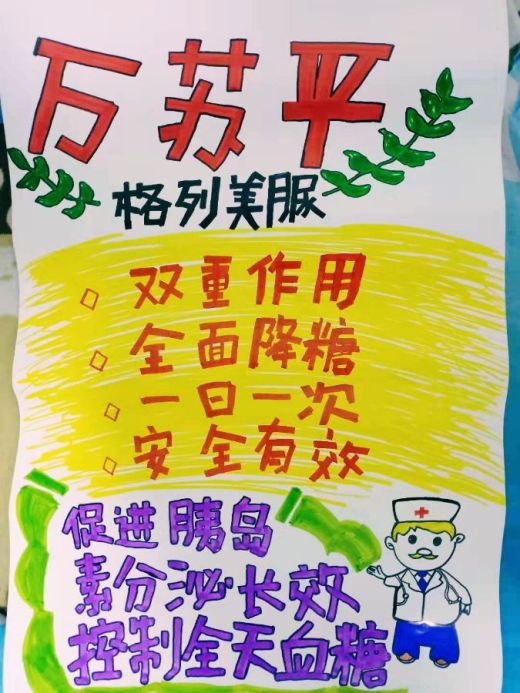 万苏平
格列美脲
双重作用
全面降糖
一日一次
安全有效
促进胰岛
素分泌长效
控制全天血糖